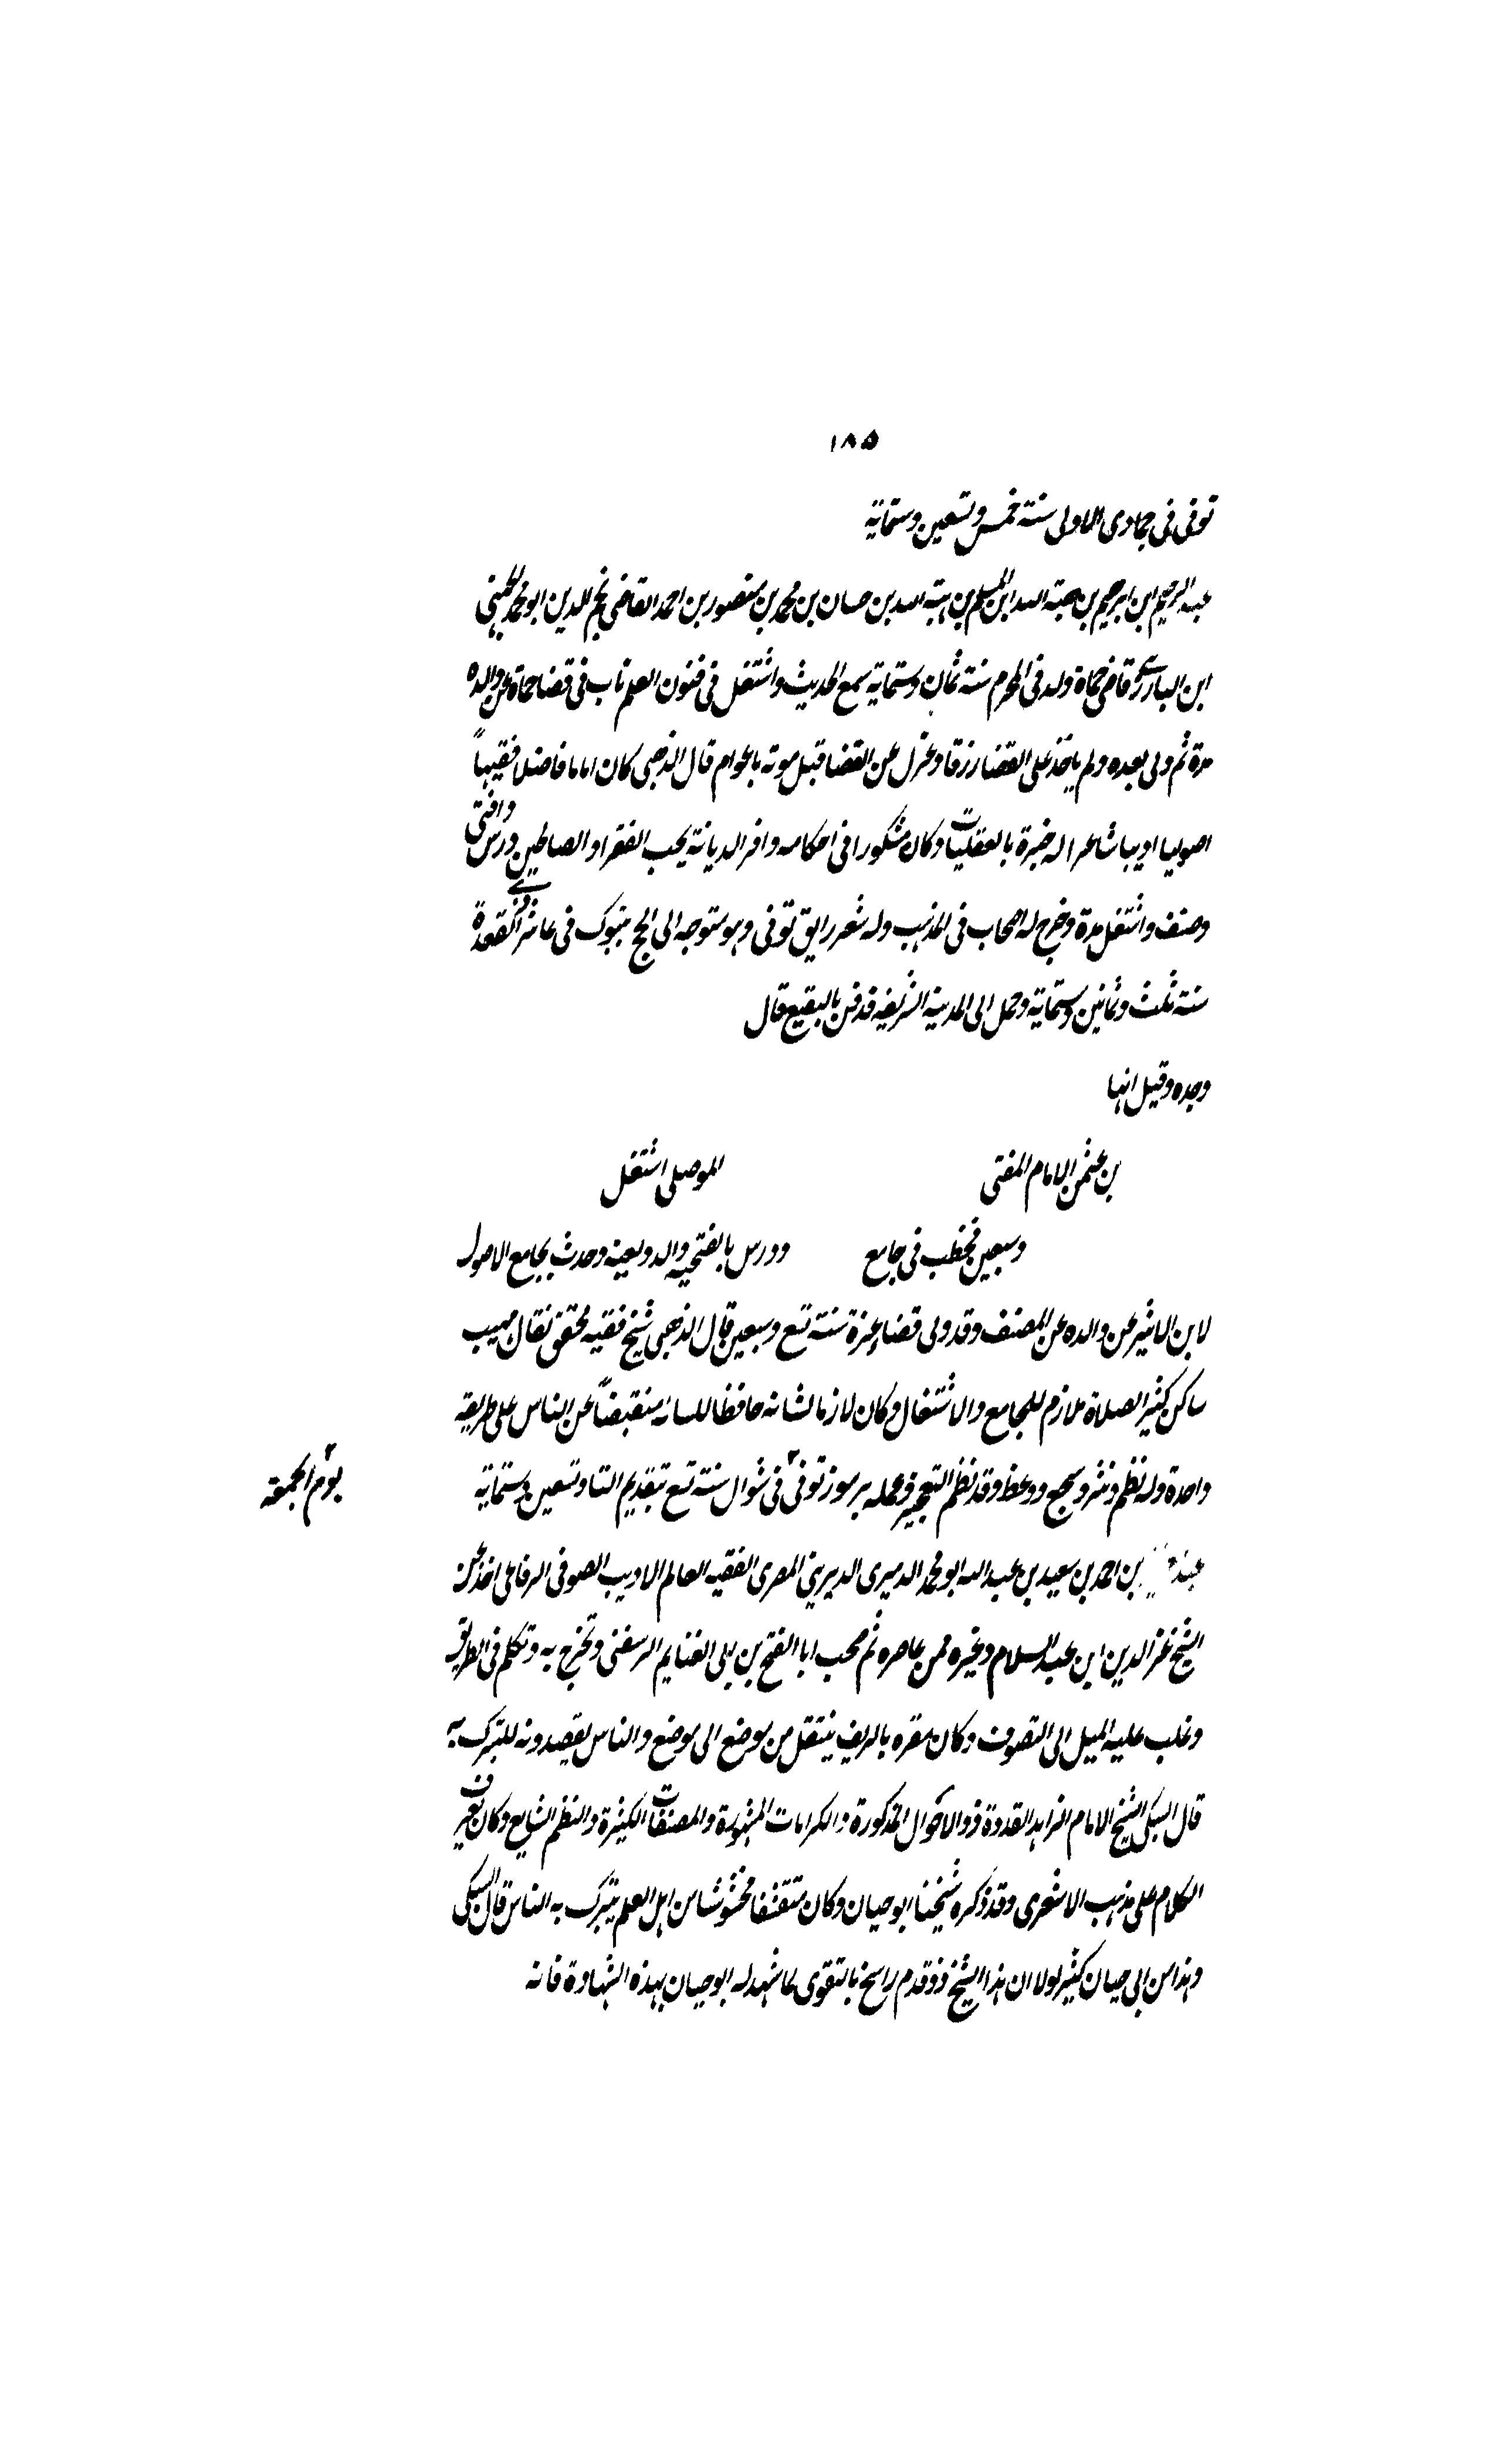 ١٨٥
توفى فى جمادى الاولى سنة خمس وتسعين وستماية
عبد الرحيم ابن ابرهيم بن هبة الله ابن المسلم بن هبة الله بن حسان بن محمد بن منصور بن احمد القاضى نجم الدين ابو محمد الجهنى
ابن البارزى قاضى حماة ولد فى المحرم سنة ثمان وستماية سمع الحديث واشتغل فى فنون العلم ناب فى قضا حماة عن والده
مدة ثم ولى بعده ولم ياخذ على القضا رزقا وعزل عن القضا قبل موته باعوام قال الذهبى كان اماما فاضلا فقيها
اصوليا اديبا شاعرا له خبرة بالعقليات وكان مشكورا فى احكامه وافر الديانة يحب الفقرا والصالحين ودرس وافتى
وصنف واشتغل مدة وخرج له اصحاب فى المذهب وله شعر رايق توفى وهو متوجه الى الحج بتبوك فى عاشر ذى القعدة
سنة ثلث وثمانين وستماية وحمل الى المدينة الشريفة فدفن بالبقيع قال
وجده وقيل انها
بن عثمن الامام المفتى الموصلى اشتغل
وسبعين فخطب فى جامع ودرس بالفتحية والدولعية وحدث بجامع الاصول
لابن الاثير عن والده عن المصنف وقد ولى قضاء غزة سنة تسع وسبعين قال الذهبى شيخ فقيه محقق نقال مهيب
ساكن كثير الصلاة ملازم للجامع والاشتغال وكان لازما لشانه حافظا للسانه منقبضاً عن الناس على طريقة
واحدة وله نظم ونثر وسجع ووعظ وقد نظم التعجيز وعمله برموز توفى فى شوال سنة تسع بتقديم التا وتسعين وستماية
يوم الجمعة
بن احمد بن سعيد بن عبد الله ابو محمد الدميرى الديرينى المصرى الفقيه العالم الاديب الصوفى الرفاعى اخذ عن
الشيخ عز الدين ابن عبد السلام وغيره ممن عاصره ثم صحب ابا الفتح بن ابى الغنايم الرسغنى وتخرج به وتكلم فى الطريق
وغلب عليه الميل الى التصوف وكان مقره بالريف ينتقل من موضع الى موضع والناس يقصدونه للتبرك به
قال السبكى الشيخ الامام الزاهد القدوة ذو الاحوال المذكورة والكرامات المشهورة والمصنفات الكثيرة والنظم الشايع وكان يعرف
الكلام على مذهب الاشعرى وقد ذكره شيخنا ابو حيان وكان متقشفا مخشوشنا من اهل العلم يتبرك به الناس قال السبكى
وهذا من ابى حيان كثير لولا ان هذا الشيخ ذو قدم راسخ بالتقوى لما شهد له ابو حيان بهذه الشهادة فانه